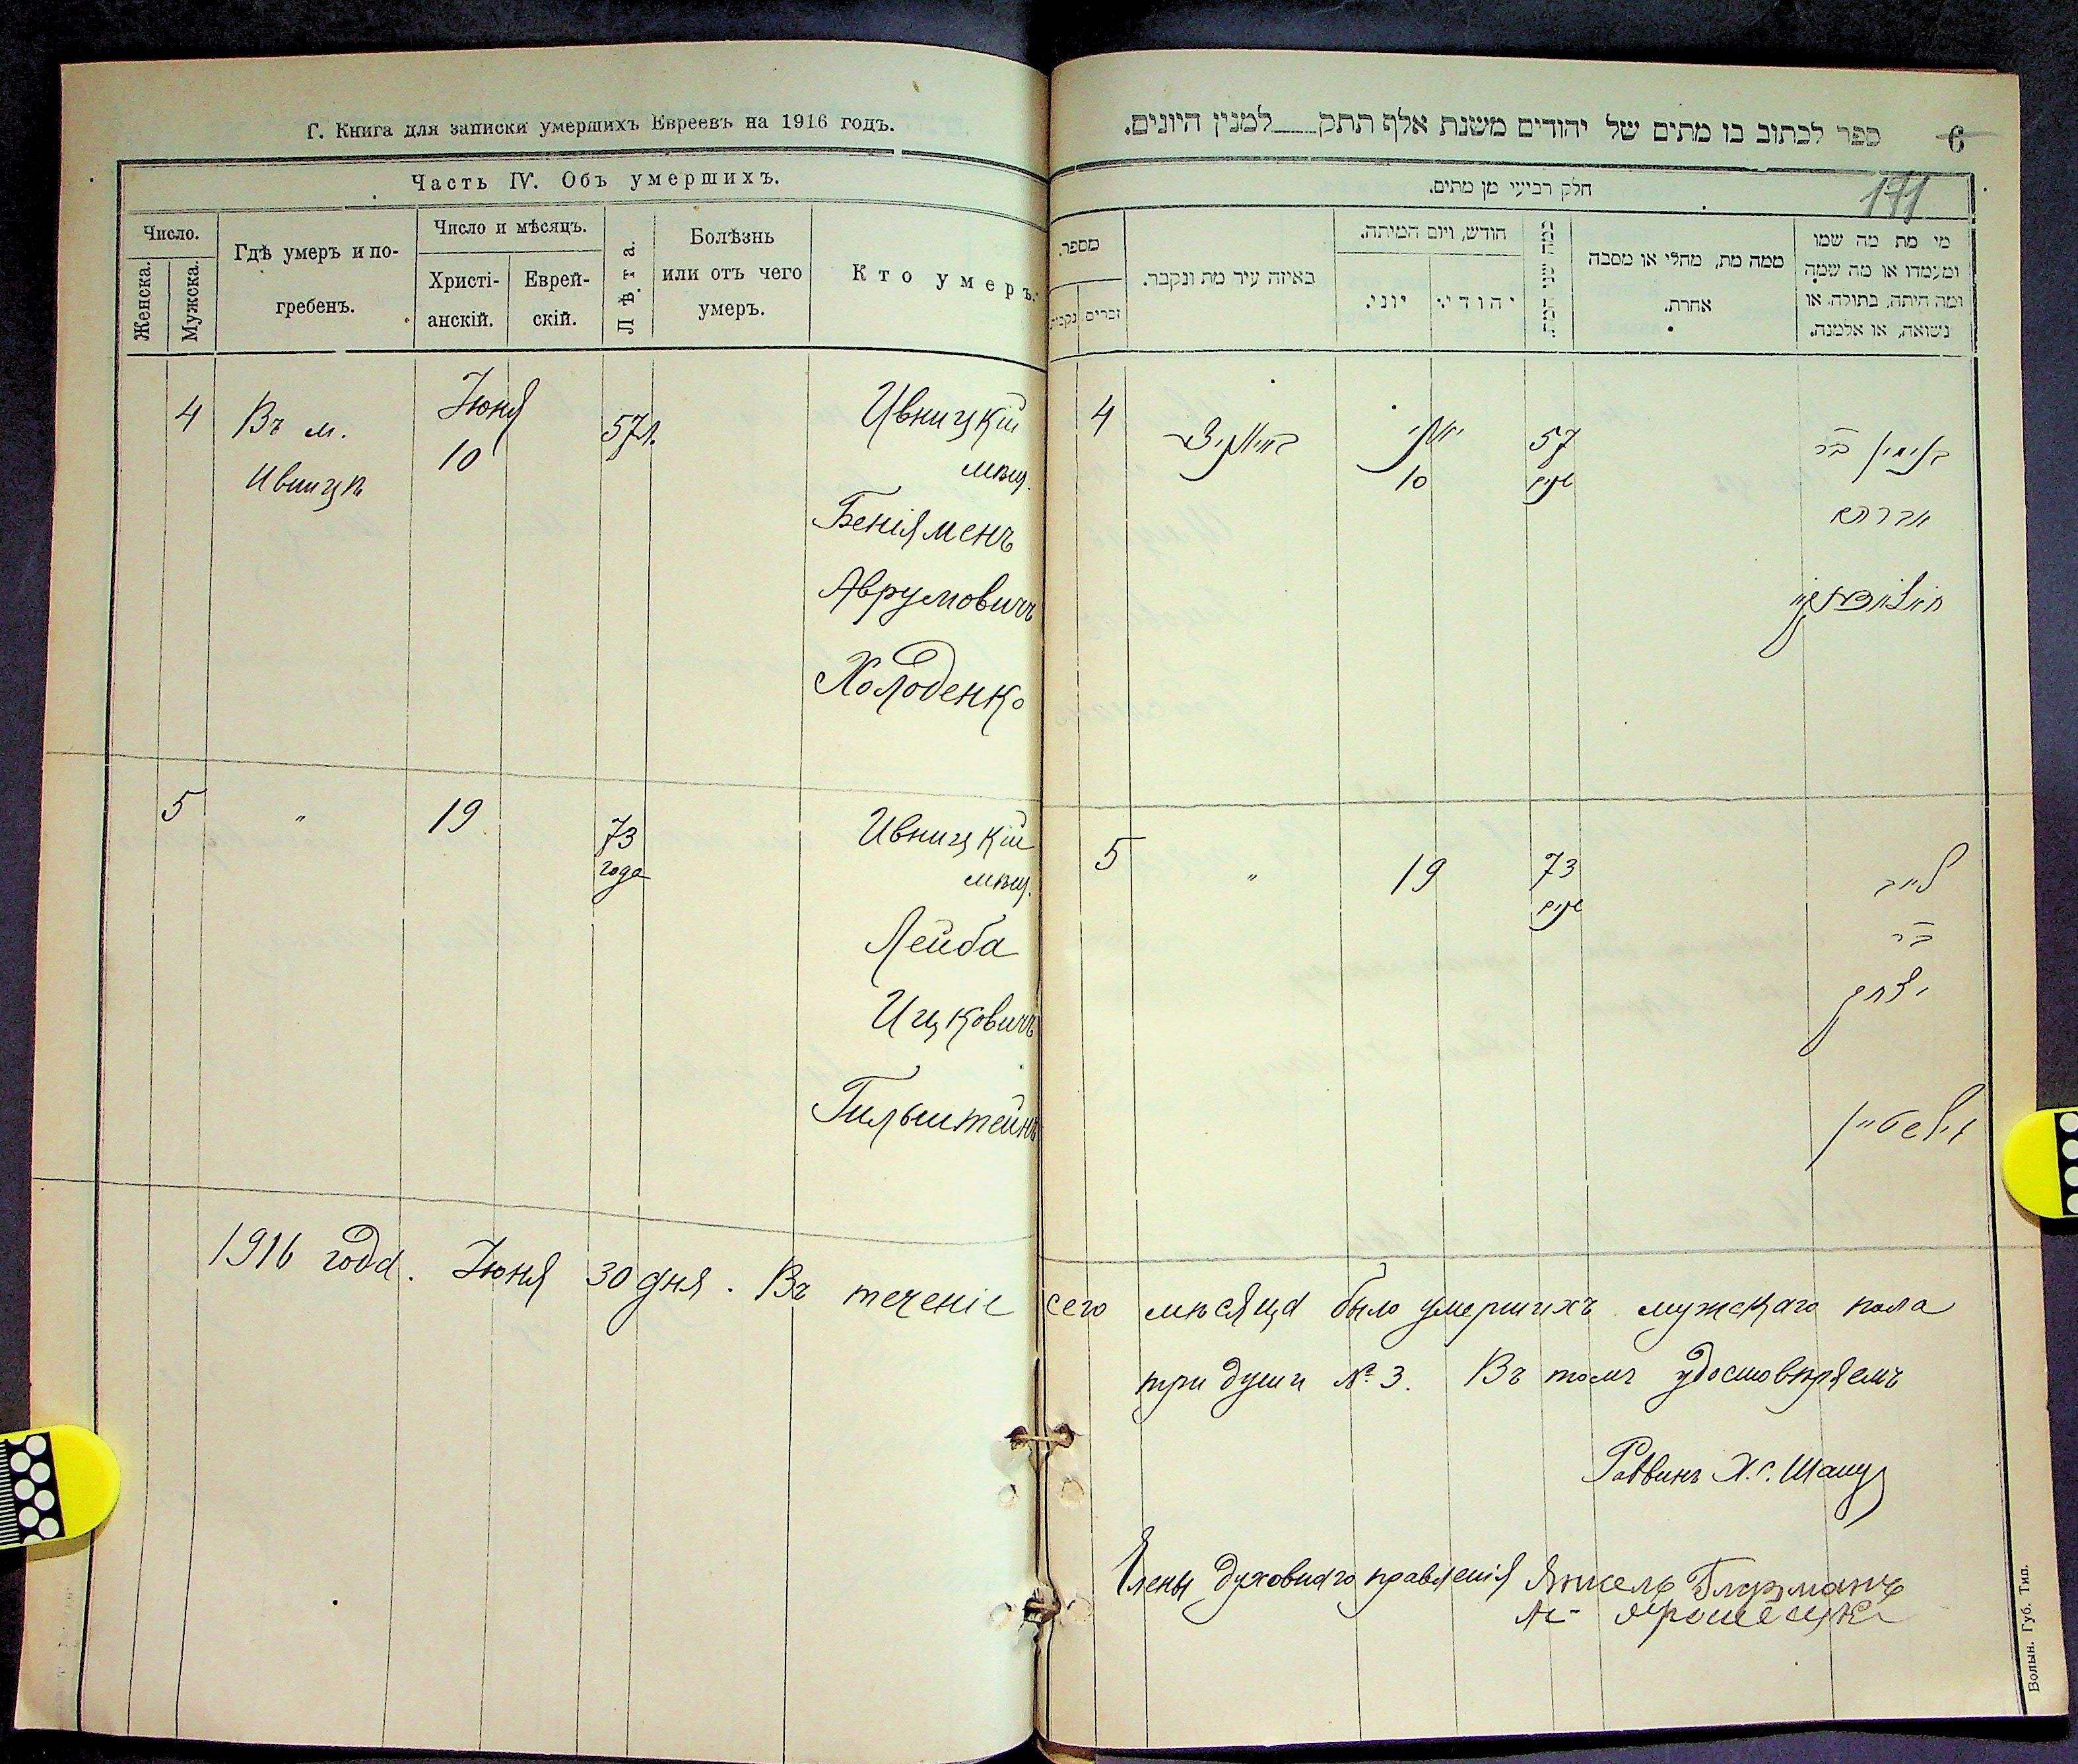 Г. Книга для записки умершихъ Евреевъ на 1916 годъ.
Часть IV. Объ умершихъ.
Число.
Женска.
Мужска.
Гдѣ умеръ и по-
гребенъ.
Число и мѣсяцъ.
Христі-
анскій.
Еврей-
скій.
Лѣта.
Болѣзнь
или отъ чего
умеръ.
Кто умеръ.
4
Въ м.
Ивницѣ
Іюня
10
57 л.
Ивницкій
мѣщ.
Беніяменъ
Аврумовичъ
Холоденко
5
"
19
73
года
Ивницкій
мѣщ.
Лейба
Ицковичъ
Гильштейнъ
1916 года. Іюня 30 дня. Въ теченіе сего мѣсяца было умершихъ мужскаго пола
три души № 3. Въ томъ удостовѣряемъ
Раввинъ Х. Г.
Члены духовнаго правленія Янкель
ספר לכתוב בו מתים של יהודים משנת אלף תתק למנין היונים.
6
171
חלק רביעי מן מתים.
מספר.
זכרים
נקבות
באיזה עיר מת ונקבר.
חודש, ויום המיתה.
יוני.
יהודי
כמה שני
ממה מת, מחלי או מסבה
אחרת.
מי מת מה שמו
ומעמדו או מה שמה
ומה היתה, בתולה, או
נשואה, או אלמנה.
4
יוני
10
57
שנים
בנימין בר
אברהם
5
"
19
73
שנים
לייב
בר
יצחק
גילשטיין
Волын. Губ. Тип.